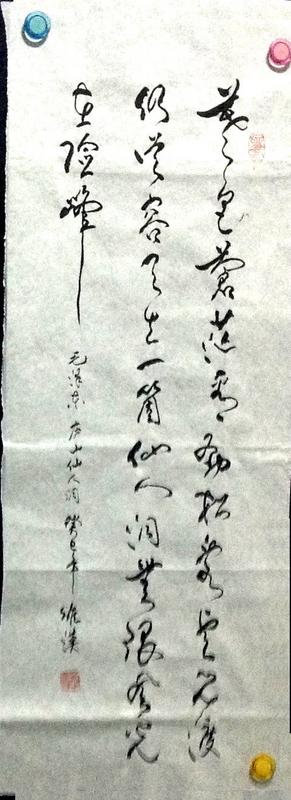 暮色蒼茫看勁松亂雲飛渡
仍從容天生一箇仙人洞無限風光
在險峰
毛澤東庐山仙人洞癸巳年